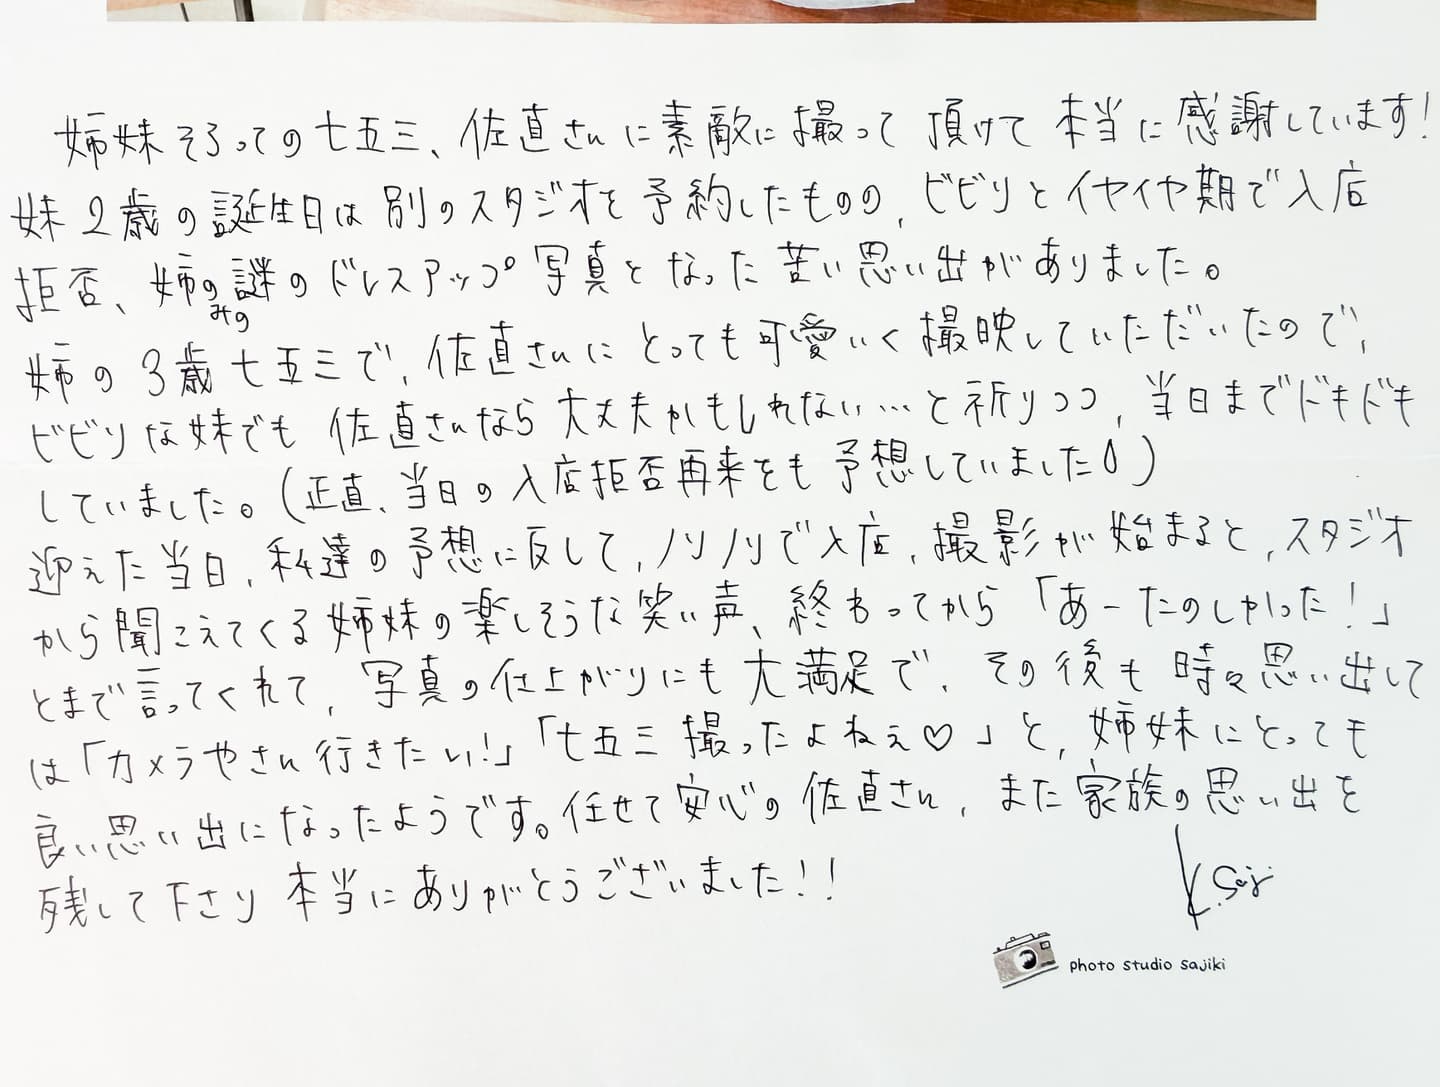 姉妹そろっての七五三、佐直さんに素敵に撮って頂けて本当に感謝しています!
妹2歳の誕生日は別のスタジオを予約したものの、ビビリとイヤイヤ期で入店
拒否、姉の謎のドレスアップ写真となった苦い思い出がありました。
みの
姉の3歳七五三で、佐直さんにとっても可愛いく撮映していただいたので、
ビビリな妹でも佐直さんなら大丈夫かもしれない…と祈りつつ、当日までドキドキ
していました。(正直、当日の入店拒否再来をも予想していました)
迎えた当日、私達の予想に反して、ノリノリで入店、撮影が始まると、スタジオ
から聞こえてくる姉妹の楽しそうな笑い声、終わってから「あーたのしかった!」
とまで言ってくれて、写真の仕上がりにも大満足で、その後も時々思い出して
は「カメラやさん行きたい!」「七五三撮ったよねぇ♡」と、姉妹にとっても
良い思い出になったようです。任せて安心の佐直さん、また家族の思い出を
残して下さり本当にありがとうございました!!
K.Saji
photo studio sajiki